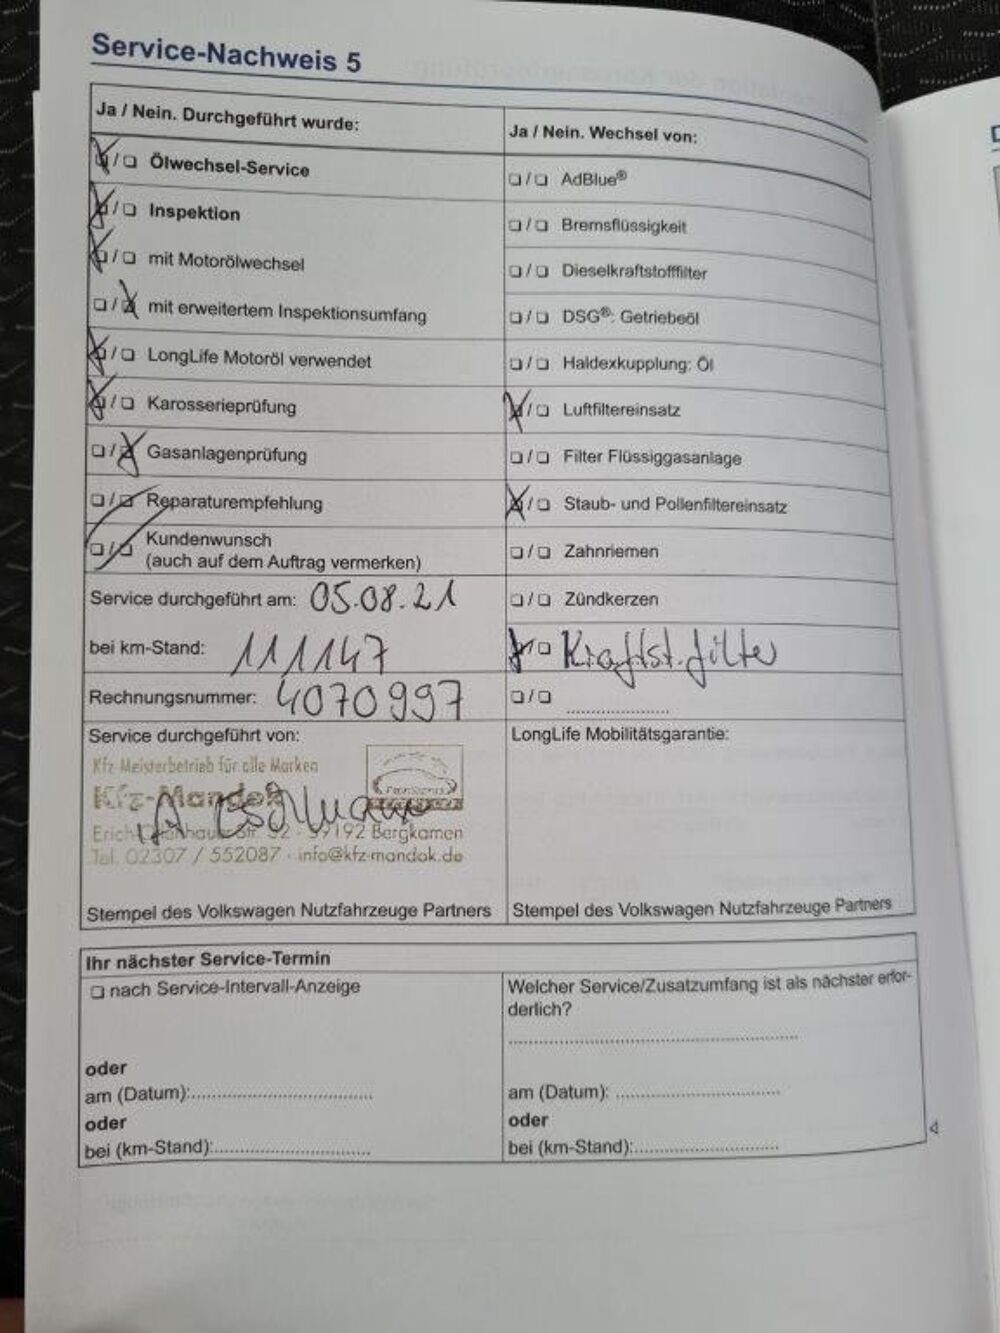 Service-Nachweis 5
Ja / Nein. Durchgeführt wurde:
Ölwechsel-Service
Inspektion
mit Motorölwechsel
mit erweitertem Inspektionsumfang
LongLife Motoröl verwendet
Karosserieprüfung
Gasanlagenprüfung
Reparaturempfehlung
Kundenwunsch
(auch auf dem Auftrag vermerken)
Service durchgeführt am: 05.08.21
bei km-Stand: 111147
Rechnungsnummer: 4070997
Service durchgeführt von:
Kfz-Meisterbetrieb für alle Marken
Kfz-Mandok
Erich- 52 - 59192 Bergkamen
Tel. 02307 / 552087 · info@kfz-mandok.de
Stempel des Volkswagen Nutzfahrzeuge Partners
Ja / Nein. Wechsel von:
AdBlue®
Bremsflüssigkeit
Dieselkraftstofffilter
DSG®: Getriebeöl
Haldexkupplung: Öl
Luftfiltereinsatz
Filter Flüssiggasanlage
Staub- und Pollenfiltereinsatz
Zahnriemen
Zündkerzen
Kraftst.filter
LongLife Mobilitätsgarantie:
Stempel des Volkswagen Nutzfahrzeuge Partners
Ihr nächster Service-Termin
nach Service-Intervall-Anzeige
oder
am (Datum):
oder
bei (km-Stand):
Welcher Service/Zusatzumfang ist als nächster erfor-
derlich?
am (Datum):
oder
bei (km-Stand):